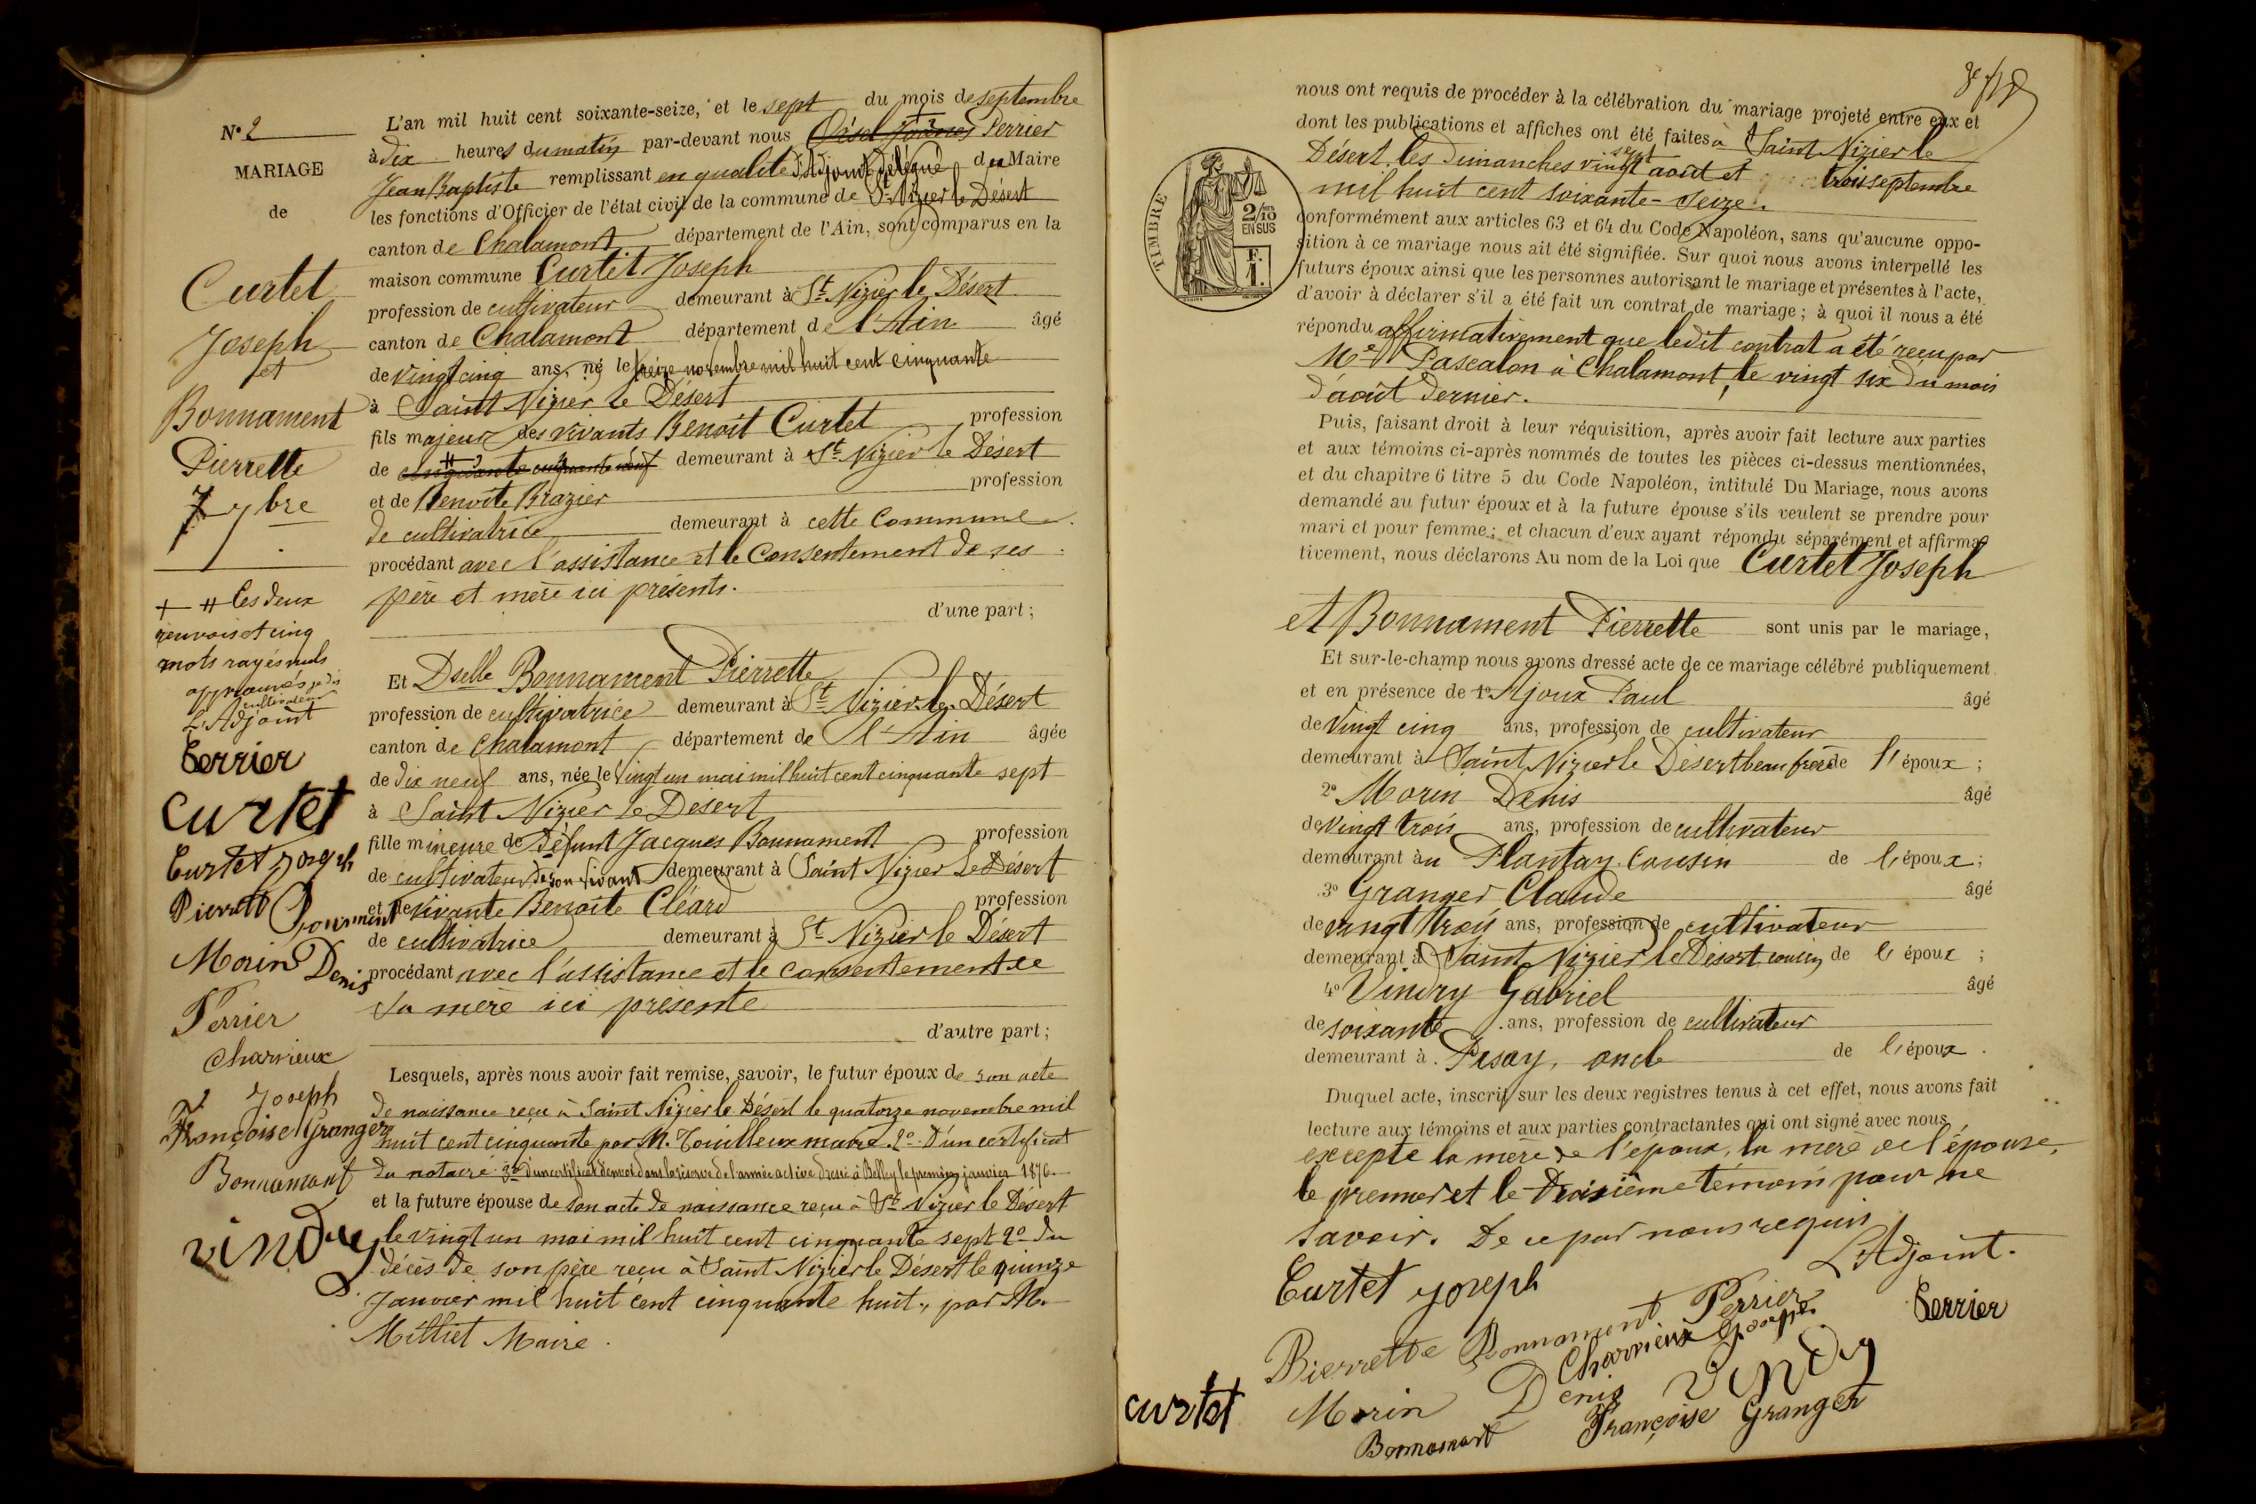 N° 2
MARIAGE
de
Curtet
Joseph
et
Bonnament
Pierrette
7 7bre
+ # Ces deux
renvois et cinq
mots rayés nuls
approuvés je dis
cultivateur
L'Adjoint
Perrier
Curtet
Curtet Joseph
Pierrett Bonnment
Morin Denis
Perrier
Charvieux
Joseph
Françoise Granger
Bonnamant
Vindry
L'an mil huit cent soixante-seize, et le sept du mois de septembre
à dix heures du matin par-devant nous Perrier
Jean Baptiste remplissant en qualité d'Adjoint délégué du Maire
les fonctions d'Officier de l'état civil de la commune de St Nizier le Désert
canton de Chalamont département de l'Ain, sont comparus en la
maison commune Curtet Joseph
profession de cultivateur demeurant à St Nizier le Désert
canton de Chalamont département de l'Ain âgé
de vingt cinq ans, né le treize novembre mil huit cent cinquante
à Saint Nizier le Désert
fils majeur des vivants Benoit Curtet profession
de # demeurant à St Nizier le Désert
et de Benoîte Brazier profession
de cultivatrice demeurant à cette Commune
procédant avec l'assistance et le Consentement de ses
père et mère ici présents.
d'une part;
Et Dselle Bonnament Pierrette
profession de cultivatrice demeurant à St Nizier le Désert
canton de Chalamont département de l'Ain âgée
de dix neuf ans, née le vingt un mai mil huit cent cinquante sept
à Saint Nizier le Désert
fille mineure de Défunt Jacques Bonnament profession
de cultivateur de son vivant demeurant à Saint Nizier le Désert
et de vivante Benoite Cléard profession
de cultivatrice demeurant à St Nizier le Désert
procédant avec l'assistance et le consentement de
sa mère ici présente
d'autre part;
Lesquels, après nous avoir fait remise, savoir, le futur époux de son acte
de naissance reçu à Saint Nizier le Désert le quatorze novembre mil
huit cent cinquante par M. Touilleux maire. 2° D'un certificat
du notaire 3° d'un certificat d'envoi dans la réserve de l'armée active dressé à Belley le premier janvier 1876.
et la future épouse de son acte de naissance reçu à St Nizier le Désert
le vingt un mai mil huit cent cinquante sept 2° du
décès de son père reçu à Saint Nizier le Désert le quinze
Janvier mil huit cent cinquante huit, par M.
Milliet Maire.
nous ont requis de procéder à la célébration du mariage projeté entre eux et
dont les publications et affiches ont été faites à Saint Nizier le
Désert les dimanches vingt sept août et trois septembre
mil huit cent soixante-seize.
TIMBRE
2/10
EN SUS
F.
1.
conformément aux articles 63 et 64 du Code Napoléon, sans qu'aucune oppo-
sition à ce mariage nous ait été signifiée. Sur quoi nous avons interpellé les
futurs époux ainsi que les personnes autorisant le mariage et présentes à l'acte,
d'avoir à déclarer s'il a été fait un contrat de mariage; à quoi il nous a été
répondu affirmativement que ledit contrat a été reçu par
Me Pascalon à Chalamont, le vingt six du mois
d'août dernier.
Puis, faisant droit à leur réquisition, après avoir fait lecture aux parties
et aux témoins ci-après nommés de toutes les pièces ci-dessus mentionnées,
et du chapitre 6 titre 5 du Code Napoléon, intitulé Du Mariage, nous avons
demandé au futur époux et à la future épouse s'ils veulent se prendre pour
mari et pour femme; et chacun d'eux ayant répondu séparément et affirma-
tivement, nous déclarons Au nom de la Loi que Curtet Joseph
et Bonnament Pierrette sont unis par le mariage,
Et sur-le-champ nous avons dressé acte de ce mariage célébré publiquement
et en présence de 1° Ajoux Paul âgé
de Vingt cinq ans, profession de cultivateur
demeurant à Saint Nizier le Désert beau frère de l'époux;
2° Morin Denis âgé
de vingt trois ans, profession de cultivateur
demeurant au Plantay cousin de l'époux;
3° Granger Claude âgé
de vingt trois ans, profession de cultivateur
demeurant à Saint Nizier le Désert cousin de l'époux;
4° Vindry Gabriel âgé
de soixante ans, profession de cultivateur
demeurant à Pisay, oncle de l'époux.
Duquel acte, inscrit sur les deux registres tenus à cet effet, nous avons fait
lecture aux témoins et aux parties contractantes qui ont signé avec nous
excepté la mère de l'époux, la mère de l'épouse,
le premier et le troisième témoins pour ne
savoir. De ce par nous requis
L'Adjoint.
Curtet Joseph
Perrier
Pierrette Bonnament Perrier
Charvieux Joseph
Curtet
Morin Denis Vindry
Bonnamant
Françoise Granger